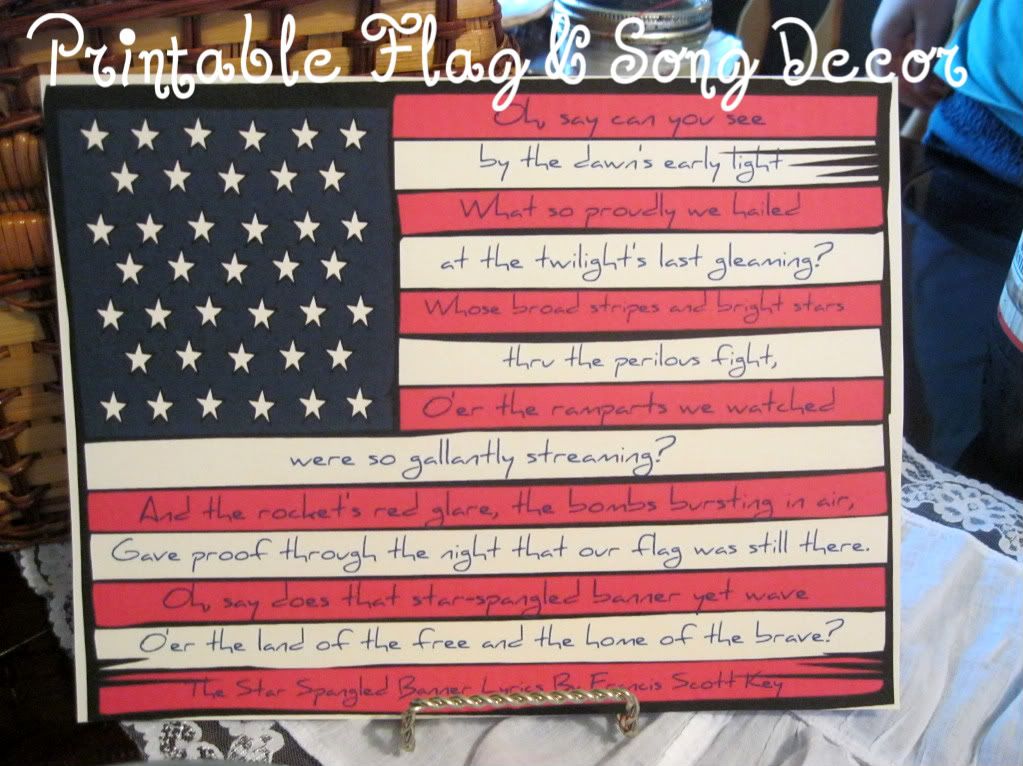 Printable Flag & Song Decor
Oh, say can you see
by the dawn's early light
What so proudly we hailed
at the twilight's last gleaming?
Whose broad stripes and bright stars
thru the perilous fight,
O'er the ramparts we watched
were so gallantly streaming?
And the rocket's red glare, the bombs bursting in air,
Gave proof through the night that our flag was still there.
Oh, say does that star-spangled banner yet wave
O'er the land of the free and the home of the brave?
The Star Spangled Banner Lyrics By Francis Scott Key